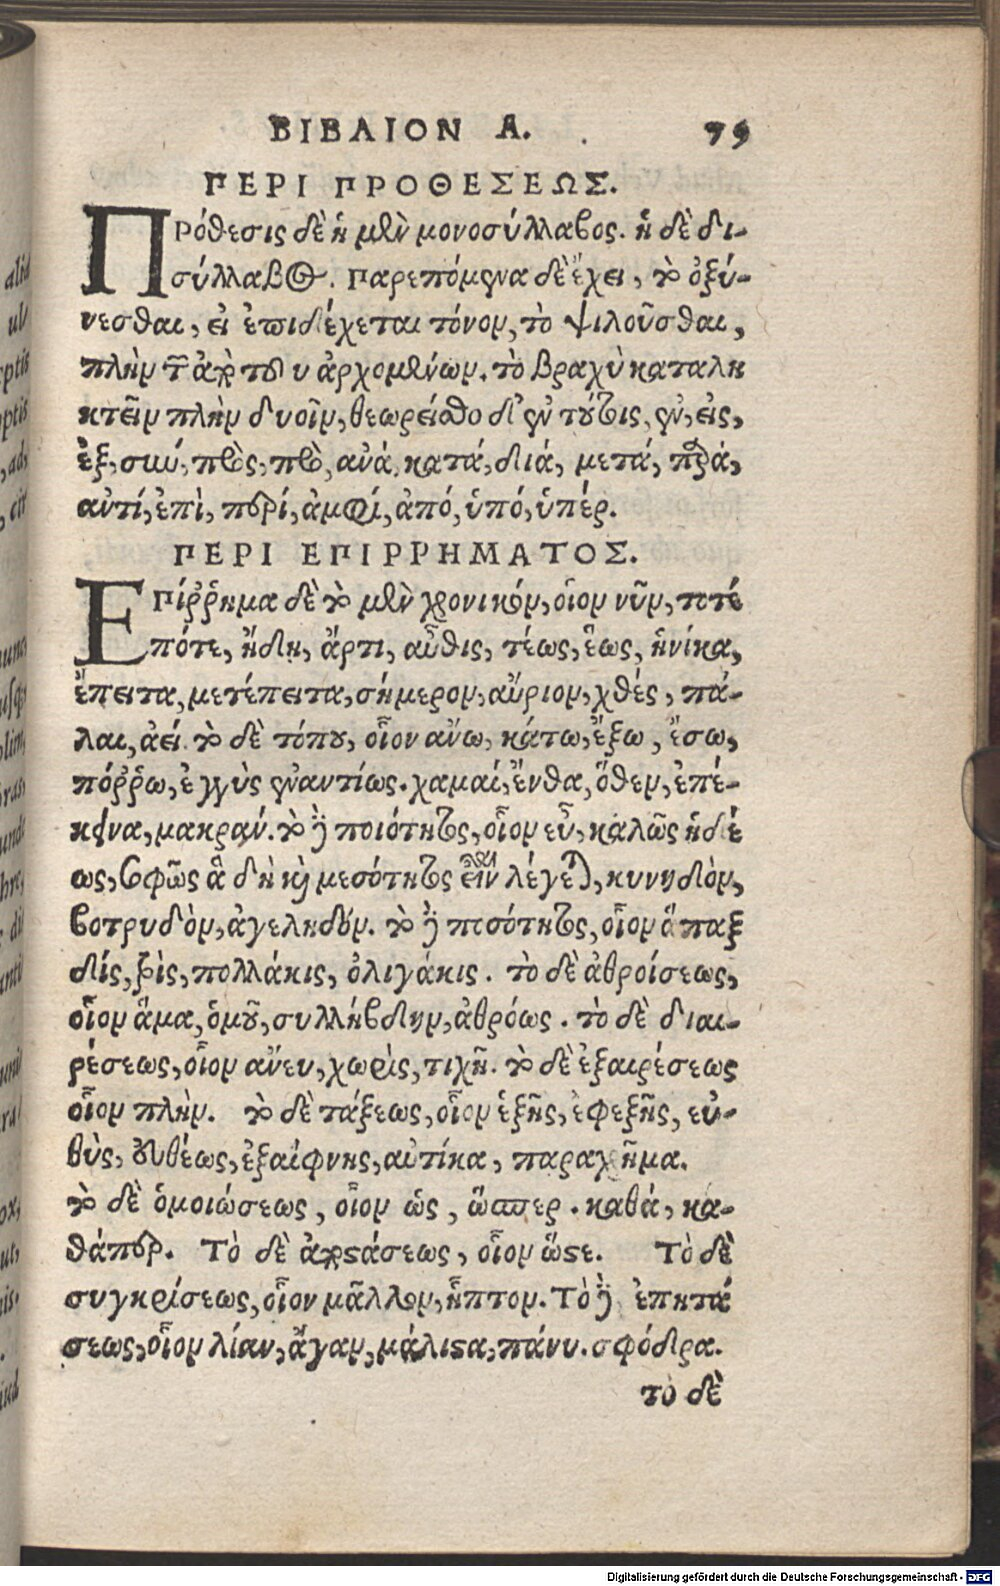 ΒΙΒΛΙΟΝ Α. 79
ΠΕΡΙ ΠΡΟΘΕΣΕΩΣ.
Πρόθεσις δὲ ἡ μὲν μονοσύλλαβος. ἡ δὲ δι-
σύλλαβος. Παρεπόμενα δὲ ἔχει, τὸ ὀξύ-
νεσθαι, εἰ ἐπιδέχεται τόνον, τὸ ψιλοῦσθαι,
πλὴν τῶν ἀπὸ τοῦ υ ἀρχομένων. τὸ βραχὺ καταλη
κτεῖν πλὴν δυοῖν, θεωρείσθω δ' ἐν τούτοις, ἐν, εἰς,
ἐξ, σύν, πρὸς, πρὸ, ἀνά, κατά, διά, μετά, παρά,
αὐτί, ἐπὶ, περί, ἀμφί, ἀπό, ὑπό, ὑπέρ.
ΠΕΡΙ ΕΠΙΡΡΗΜΑΤΟΣ.
Επίῤῥημα δὲ τὸ μὲν χρονικόν, οἷον νῦν, ποτέ
πότε, ἤδη, ἄρτι, αὖθις, τέως, ἕως, ἡνίκα,
ἔπειτα, μετέπειτα, σήμερον, αὔριον, χθές, πά-
λαι, ἀεί. τὸ δὲ τόπου, οἷον ἄνω, κάτω, ἔξω, ἔσω,
πόῤῥω, ἐγγὺς ἐναντίως. χαμαί, ἔνθα, ὅθεν, ἐπέ-
κεινα, μακράν. τὸ δὲ ποιότητος, οἷον εὖ, καλῶς ἡδέ
ως, σοφῶς ἃ δὴ καὶ μεσότητος εἶναι λέγεται, κυνηδὸν,
βοτρυδὸν, ἀγεληδόν. τὸ δὲ ποσότητος, οἷον ἅπαξ
δίς, τρὶς, πολλάκις, ὀλιγάκις. τὸ δὲ ἀθροίσεως,
οἷον ἅμα, ὁμοῦ, συλλήβδην, ἀθρόως. τὸ δὲ διαι-
ρέσεως, οἷον ἄνευ, χωρὶς, τιχῆ. τὸ δὲ ἐξαιρέσεως
οἷον πλήν. τὸ δὲ τάξεως, οἷον ἑξῆς, ἐφεξῆς, εὐ-
θὺς, εὐθέως, ἐξαίφνης, αὐτίκα, παραχρῆμα.
τὸ δὲ ὁμοιώσεως, οἷον ὡς, ὥσπερ. καθά, κα-
θάπερ. Τὸ δὲ ἀποστάσεως, οἷον ὥστε. Τὸ δὲ
συγκρίσεως, οἷον μᾶλλον, ἧπτον. Τὸ δὲ ἐπητά
σεως, οἷον λίαν, ἄγαν, μάλιστα, πάνυ. σφόδρα.
τὸ δὲ
Digitalisierung gefördert durch die Deutsche Forschungsgemeinschaft - DFG